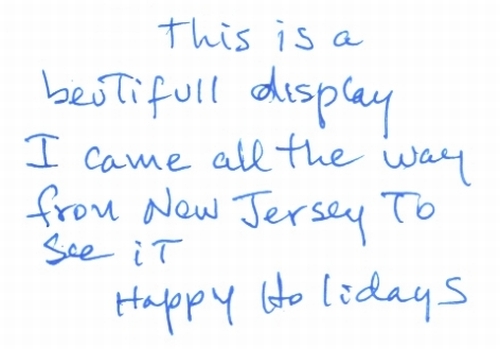 This is a
beutifull display
I came all the way
from New Jersey To
see iT
Happy Holidays